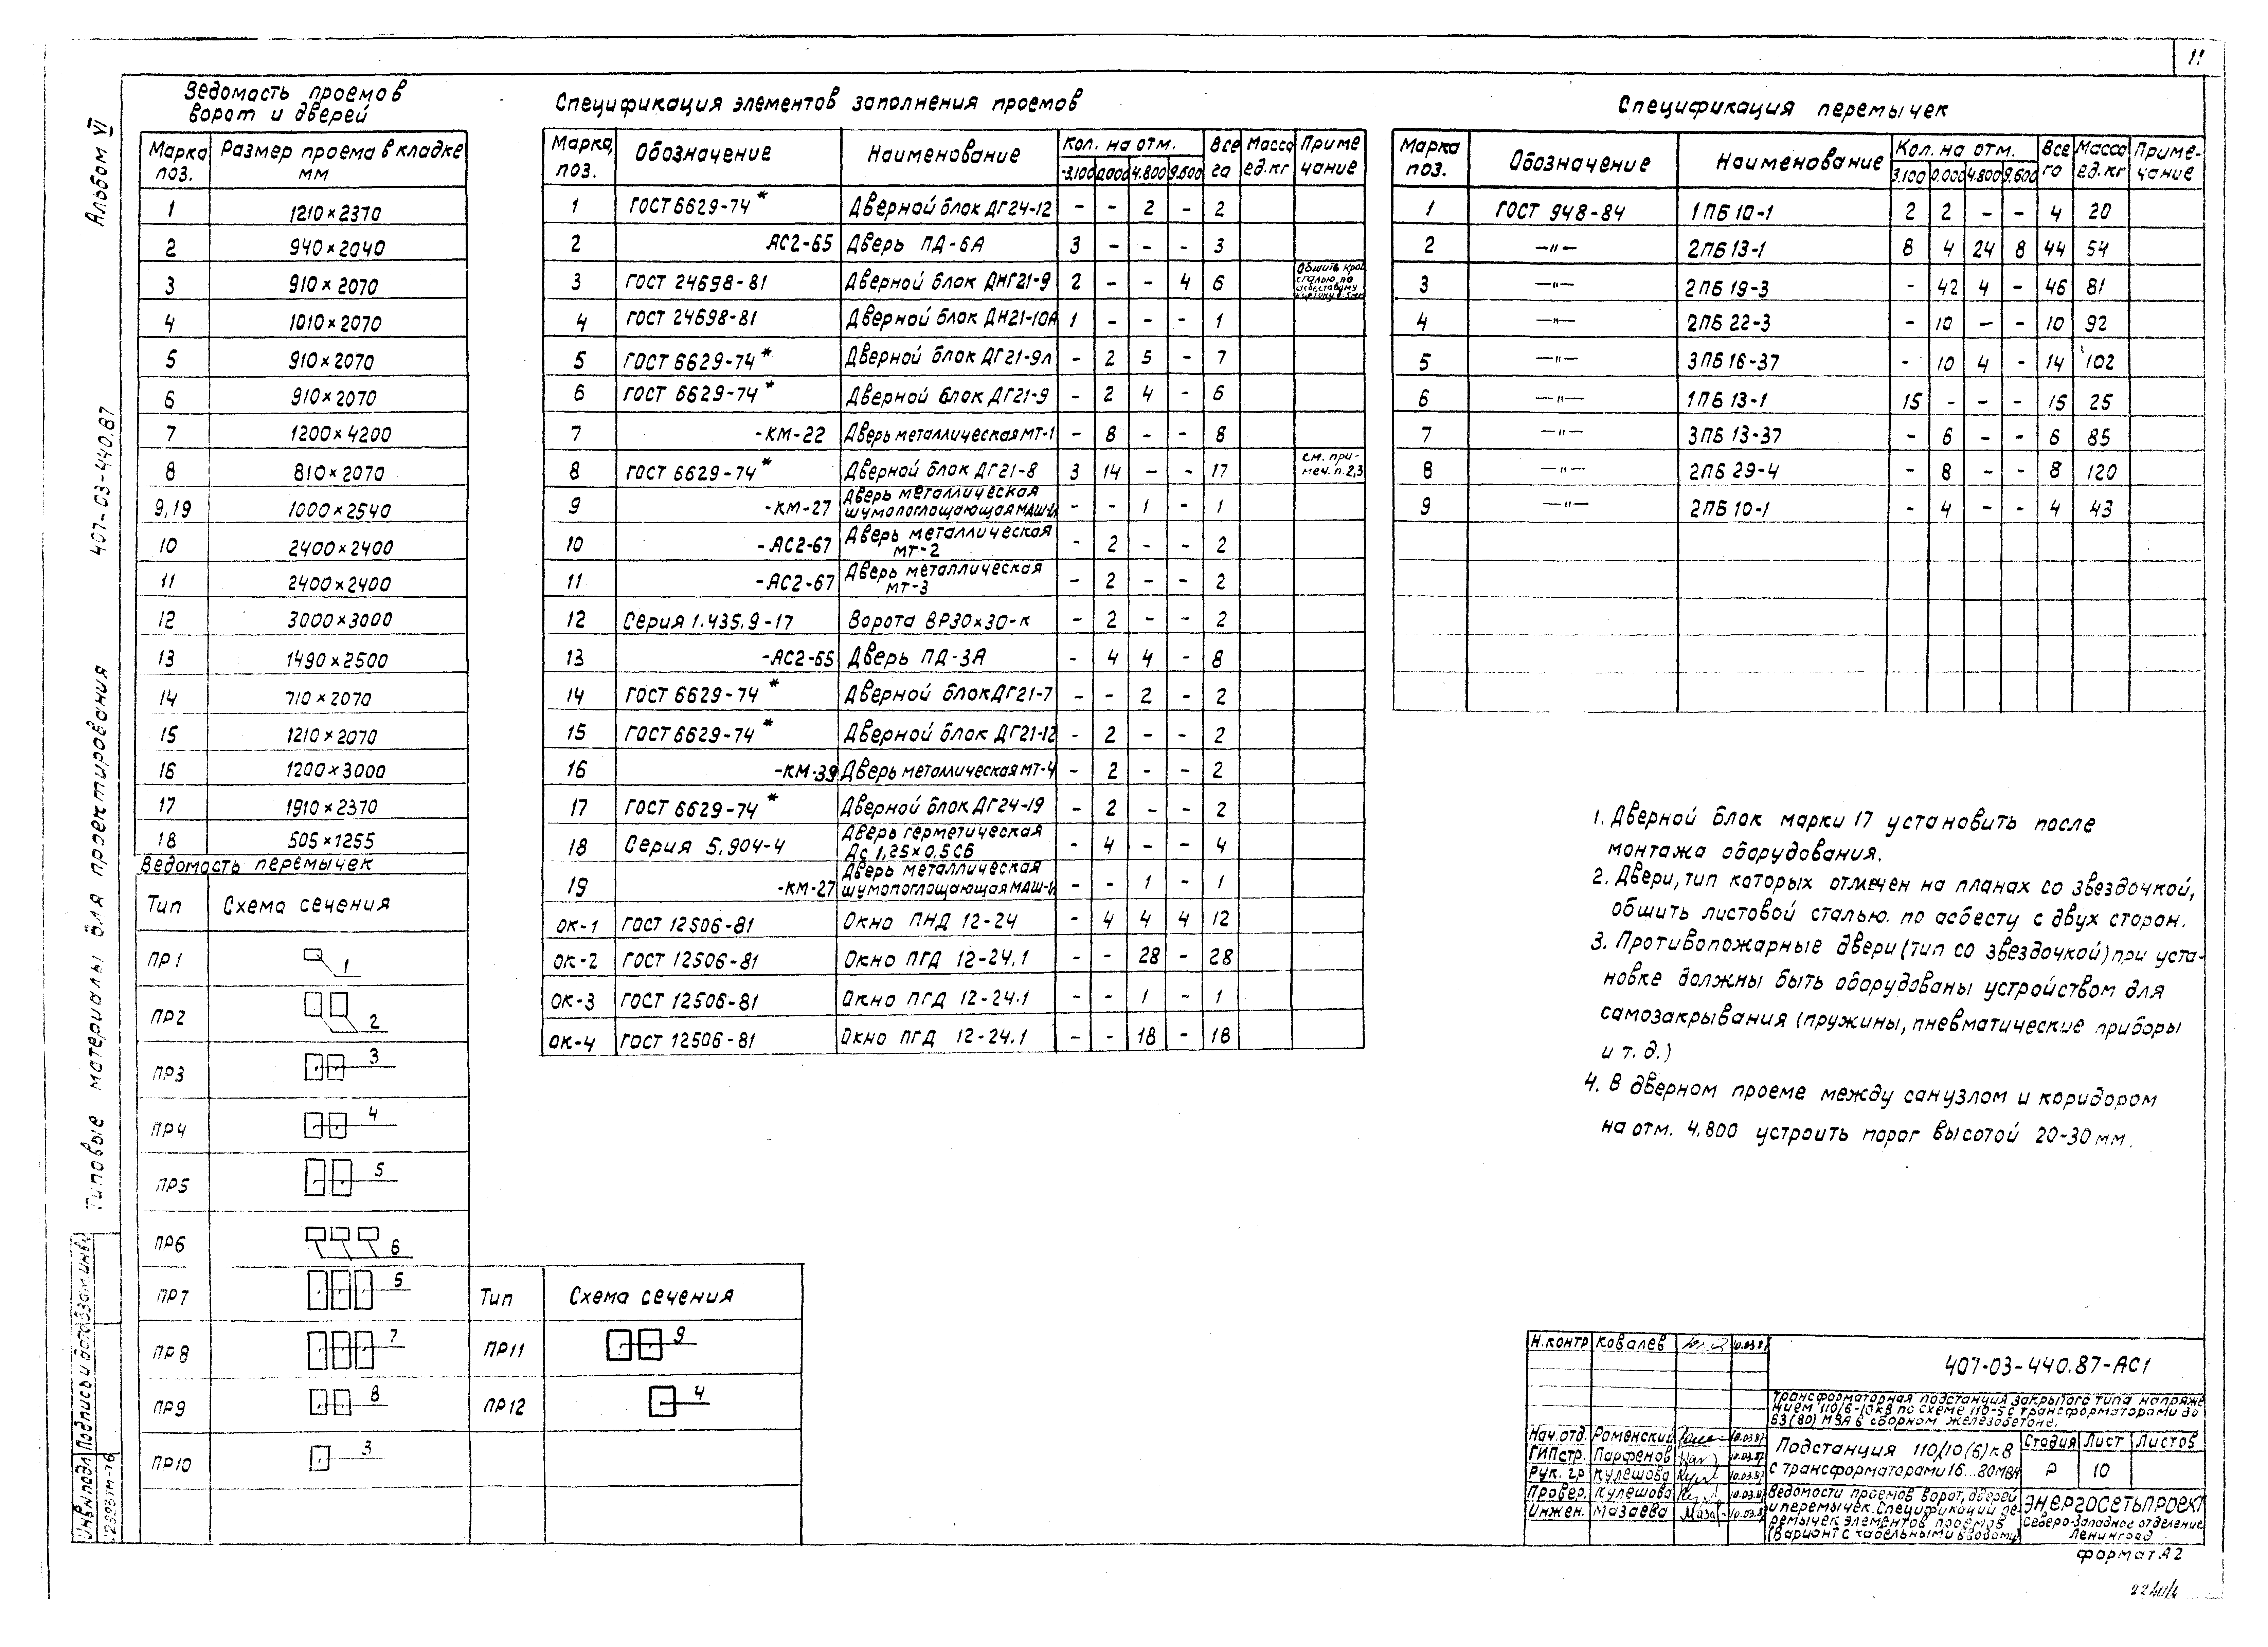 11
Альбом VI
407-03-440.87
Типовые материалы для проектирования
Ведомость проемов
ворот и дверей
Марка поз. Размер проема в кладке мм
1 1210×2370
2 940×2040
3 910×2070
4 1010×2070
5 910×2070
6 910×2070
7 1200×4200
8 810×2070
9,19 1000×2540
10 2400×2400
11 2400×2400
12 3000×3000
13 1490×2500
14 710×2070
15 1210×2070
16 1200×3000
17 1910×2370
18 505×1255
Ведомость перемычек
Тип Схема сечения
ПР1 1
ПР2 2
ПР3 3
ПР4 4
ПР5 5
ПР6 6
ПР7 5
ПР8 7
ПР9 8
ПР10 3
Тип Схема сечения
ПР11 9
ПР12 4
Спецификация элементов заполнения проемов
Марка, поз. Обозначение Наименование Кол. на отм. Всего Масса ед.кг Примечание
-3.100 0.000 4.800 9.600
1 ГОСТ 6629-74* Дверной блок ДГ24-12 - - 2 - 2
2 АС2-65 Дверь ПД-6А 3 - - - 3
3 ГОСТ 24698-81 Дверной блок ДНГ21-9 2 - - 4 6
4 ГОСТ 24698-81 Дверной блок ДН21-10А 1 - - - 1
5 ГОСТ 6629-74* Дверной блок ДГ21-9л - 2 5 - 7
6 ГОСТ 6629-74* Дверной блок ДГ21-9 - 2 4 - 6
7 -КМ-22 Дверь металлическая МТ-1 - 8 - - 8
8 ГОСТ 6629-74* Дверной блок ДГ21-8 3 14 - - 17 см. примеч. п.2,3
9 -КМ-27 Дверь металлическая шумопоглощающая - - 1 - 1
10 -АС2-67 Дверь металлическая МТ-2 - 2 - - 2
11 -АС2-67 Дверь металлическая МТ-3 - 2 - - 2
12 Серия 1.435.9-17 Ворота ВР30×30-к - 2 - - 2
13 -АС2-65 Дверь ПД-3А - 4 4 - 8
14 ГОСТ 6629-74* Дверной блок ДГ21-7 - - 2 - 2
15 ГОСТ 6629-74* Дверной блок ДГ21-12 - 2 - - 2
16 -КМ-39 Дверь металлическая МТ-4 - 2 - - 2
17 ГОСТ 6629-74* Дверной блок ДГ24-19 - 2 - - 2
18 Серия 5.904-4 Дверь герметическая Дс 1,25×0,5СБ - 4 - - 4
19 -КМ-27 Дверь металлическая шумопоглощающая - - 1 - 1
ОК-1 ГОСТ 12506-81 Окно ПНД 12-24 - 4 4 4 12
ОК-2 ГОСТ 12506-81 Окно ПГД 12-24.1 - - 28 - 28
ОК-3 ГОСТ 12506-81 Окно ПГД 12-24.1 - - 1 - 1
ОК-4 ГОСТ 12506-81 Окно ПГД 12-24.1 - - 18 - 18
Спецификация перемычек
Марка поз. Обозначение Наименование Кол. на отм. Всего Масса ед.кг Примечание
3.100 0.000 4.800 9.600
1 ГОСТ 948-84 1ПБ 10-1 2 2 - - 4 20
2 —"— 2ПБ 13-1 8 4 24 8 44 54
3 —"— 2ПБ 19-3 - 42 4 - 46 81
4 —"— 2ПБ 22-3 - 10 - - 10 92
5 —"— 3ПБ 16-37 - 10 4 - 14 102
6 —"— 1ПБ 13-1 15 - - - 15 25
7 —"— 3ПБ 13-37 - 6 - - 6 85
8 —"— 2ПБ 29-4 - 8 - - 8 120
9 —"— 2ПБ 10-1 - 4 - - 4 43
1. Дверной блок марки 17 установить после
монтажа оборудования.
2. Двери, тип которых отмечен на планах со звездочкой,
обшить листовой сталью. по асбесту с двух сторон.
3. Противопожарные двери (тип со звездочкой) при уста-
новке должны быть оборудованы устройством для
самозакрывания (пружины, пневматические приборы
и т. д.)
4. В дверном проеме между санузлом и коридором
на отм. 4.800 устроить порог высотой 20-30 мм.
Н.контр Ковалев 10.03.87
Нач.отд. Роменский 10.03.87
ГИПстр. Парфенов 10.03.87
Рук. гр. Кулешова 10.03.87
Провер. Кулешова 10.03.87
Инжен. Мазаева 10.03.87
407-03-440.87-АС1
Трансформаторная подстанция закрытого типа напряже
нием 110/6-10кВ по схеме 110-5 с трансформаторами до
63(80) МВА в сборном железобетоне.
Подстанция 110/10(6) кВ
с трансформаторами 16...80МВА
Стадия Лист Листов
Р 10
Ведомости проемов ворот, дверей
и перемычек. Спецификации пе-
ремычек элементов проемов
(Вариант с кабельными вводами)
ЭНЕРГОСЕТЬПРОЕКТ
Северо-Западное отделение
Ленинград
Формат А2
Инв.№подл Подпись и дата Взам.инв.№
12393тм-т6